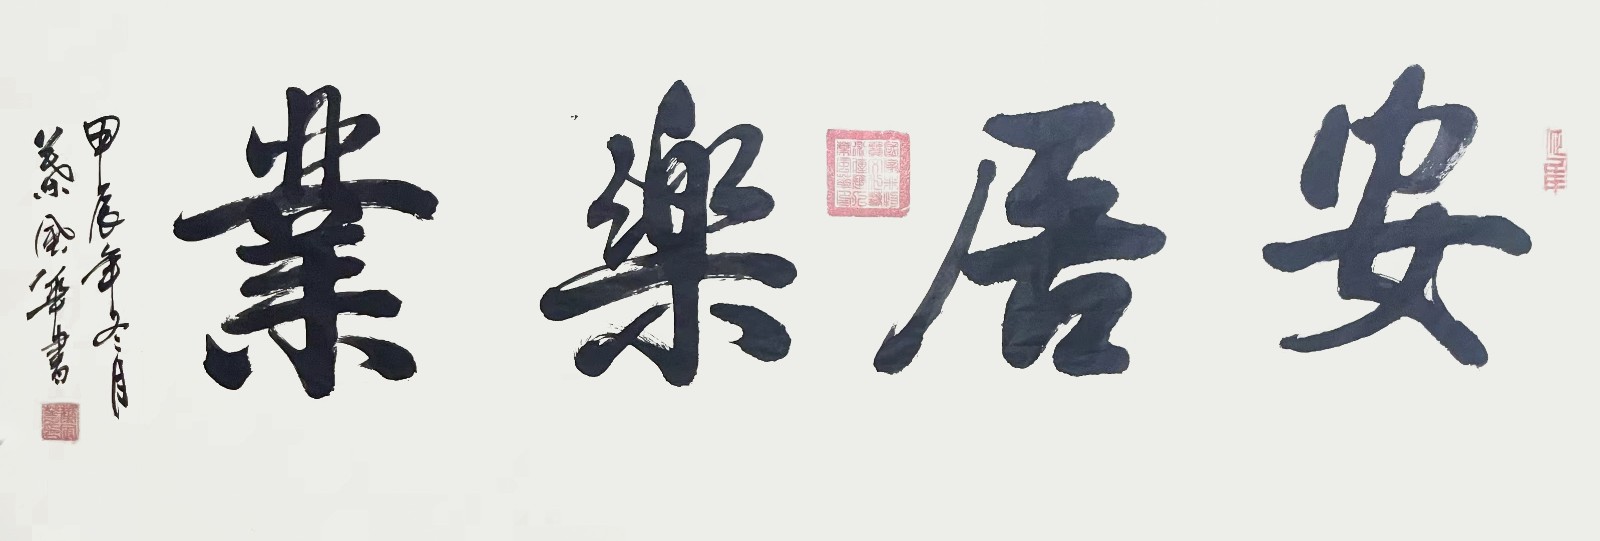 安居樂業
甲辰年冬月
葉國華書